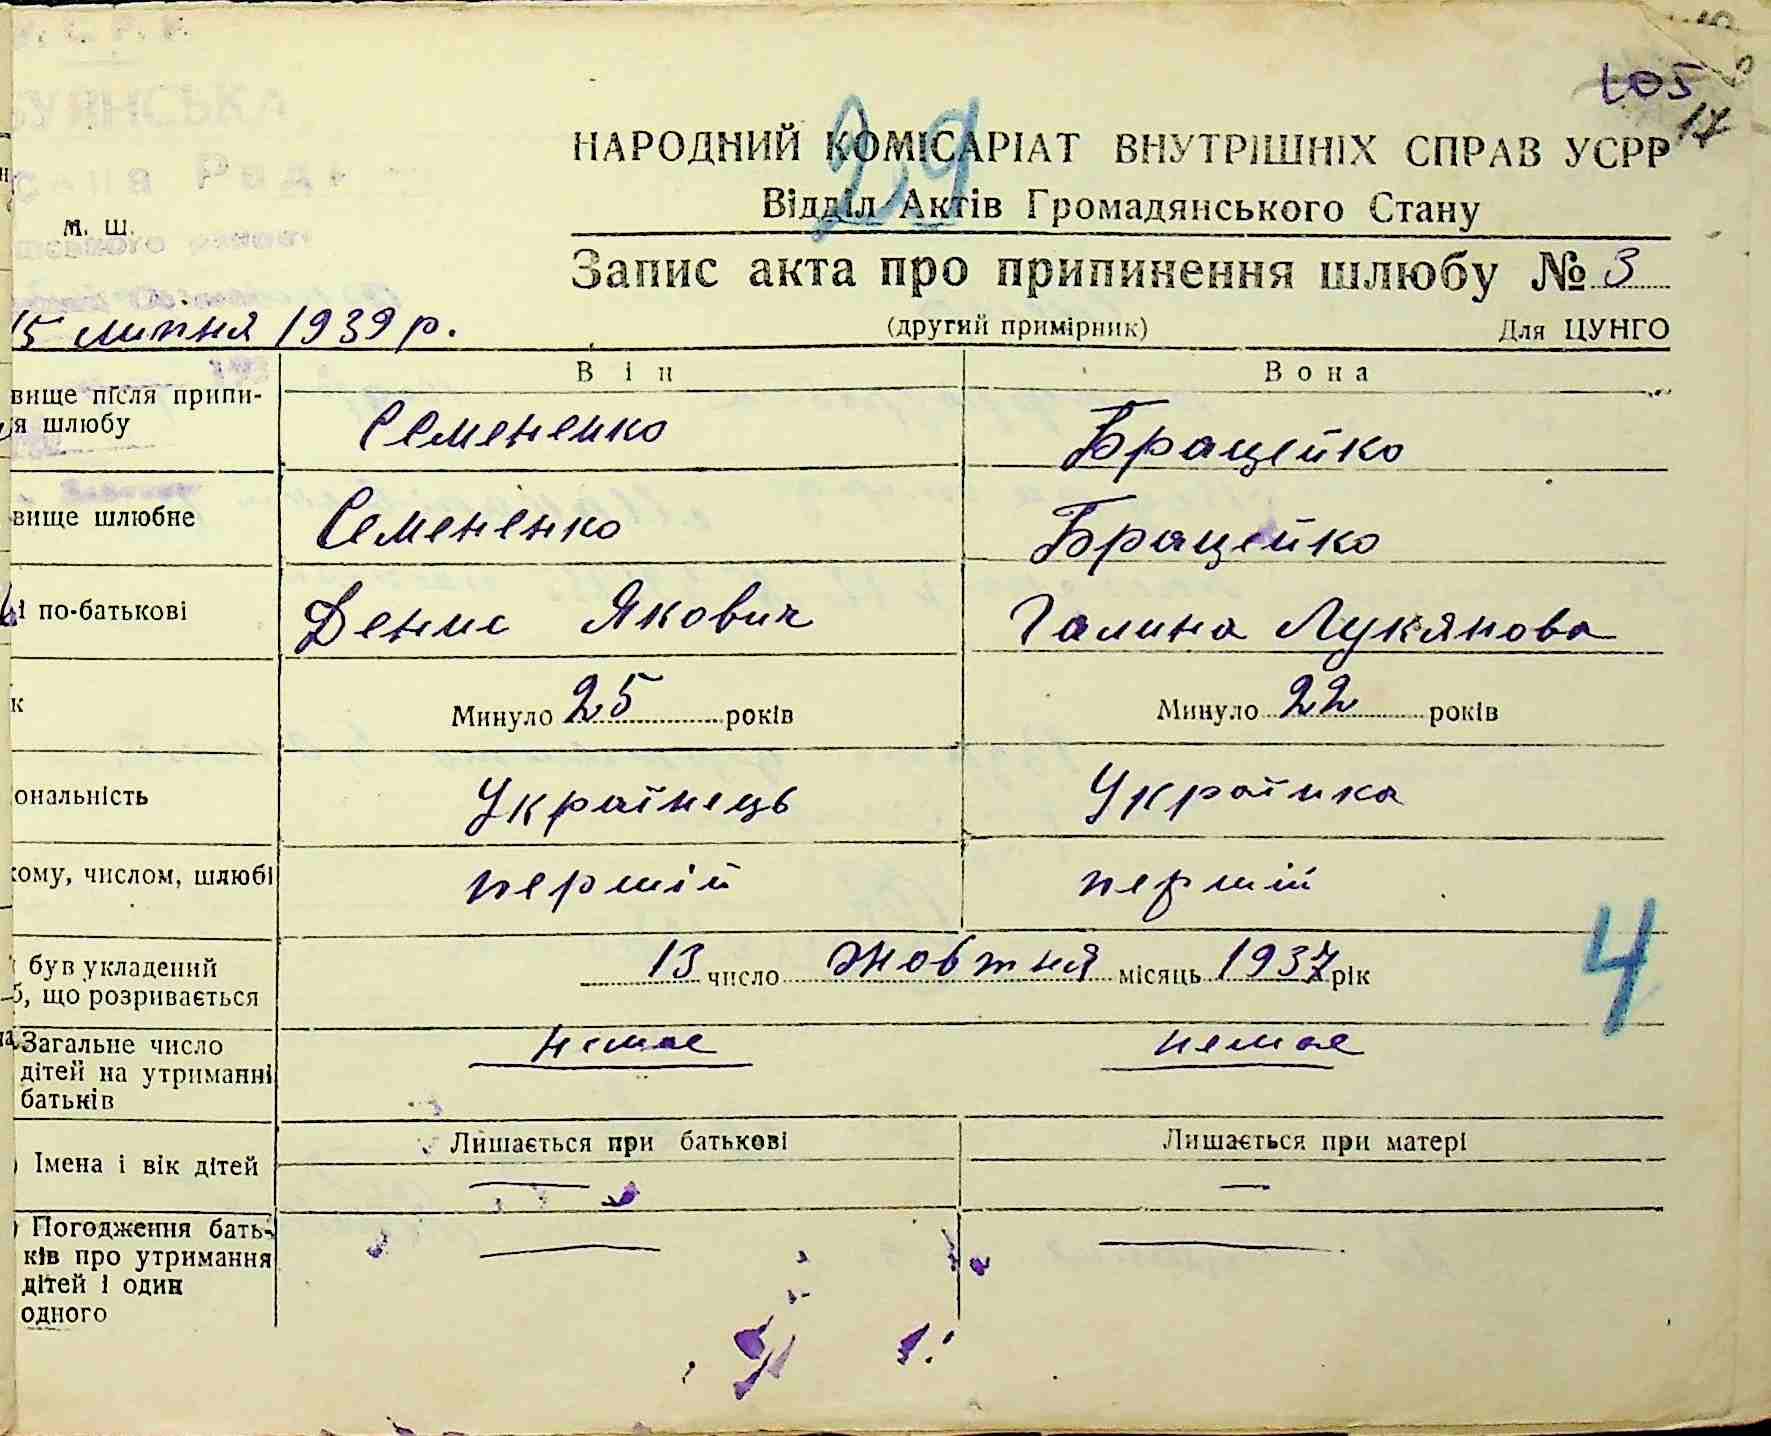 105
17
29
НАРОДНИЙ КОМІСАРІАТ ВНУТРІШНІХ СПРАВ УСРР
Відділ Актів Громадянського Стану
м. ш.
Запис акта про припинення шлюбу № 3
15 липня 1939 р.
(другий примірник) Для ЦУНГО
Він Вона
вище після припи-
я шлюбу
Семененко Брацейко
вище шлюбне Семененко Брацейко
і по-батькові Денис Якович Галина Лукянова
к Минуло 25 років Минуло 22 років
ональність Українець Українка
кому, числом, шлюбі першій першій
4
був укладений
б, що розривається
13 число Жовтня місяць 1937 рік
Загальне число
дітей на утриманні
батьків
немає немає
Лишається при батькові Лишається при матері
) Імена і вік дітей — —
) Погодження бать-
ків про утримання
дітей і один
одного
— —